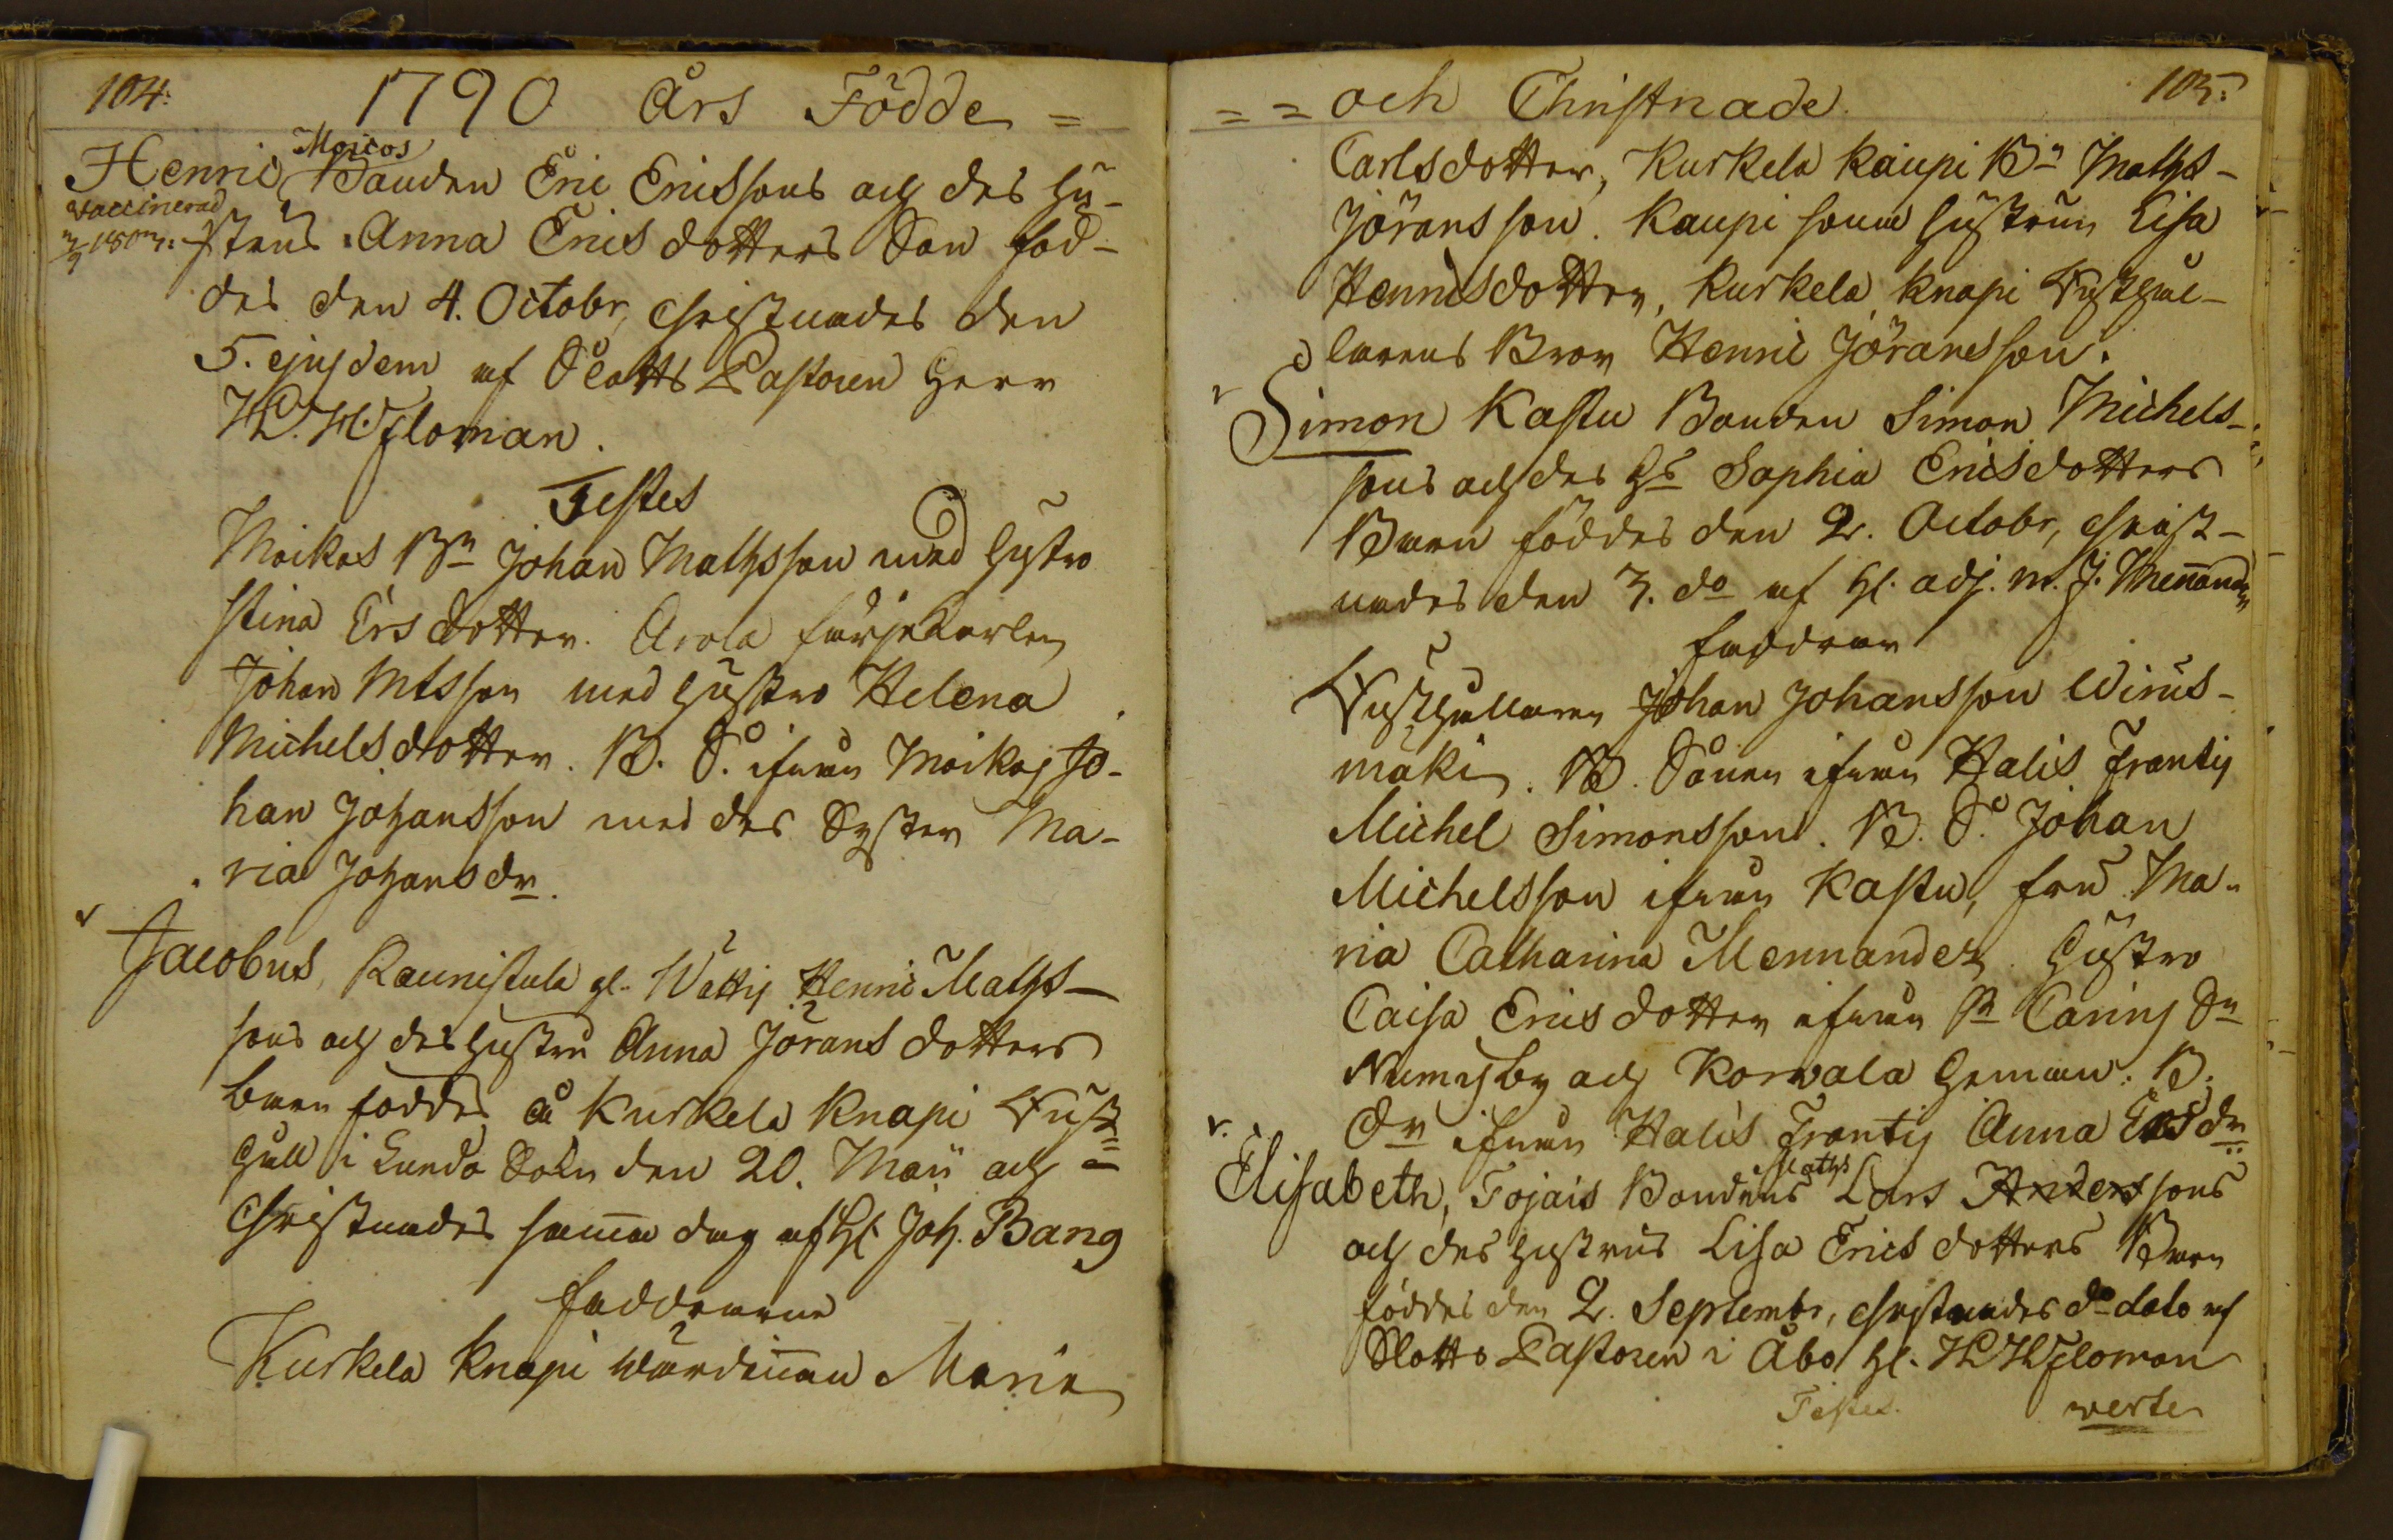 104:
1790 Års Födde =
Moicos
Henric Bonden Eric Ericssons och des hu-
vaccinerad
strus Anna Ericsdotters Son föd-
des den 4. Octobr, christnades den
5. ejusdem af Slotts Pastoren Herr
W. W. Floman.
Testes
Moikos Bn Johan Mathsson med hustro
Stina Ersdotter. Arola färjekarlen
Johan Mtsson med hustro Helena
Michelsdotter. B. S. ifrån Moikos Jo-
han Johansson med des Syster Ma-
ria Johansdr.
Jacobus, Raunistula gl. Wättij Henric Maths-
sons och des hustru Anna Jöransdotters
barn föddes å Kurkela Knapi Rust
håll i Lundo Sokn den 20. Maii och
Christnades samma dag af H. Joh. Bang
faddrarne
Kurkela Knapi wärdinnan Maria
= = och Christnade.
105:
Carlsdotter, Kurkela Kaupi Bn Maths-
Jöransson. Kaupi sonu hustrun Lisa
Henricsdotter, Kurkela Knapi Rusthål-
larens Bror Henric Jöransson.
Simon Kastu Bonden Simon Michels-
sons och des Hs Sophia Ericsdotters
Barn föddes den 2. Octobr, christ-
nades den 3. do af H. adj. M. J. Mennander
faddrar
Rusthållaren Johan Johansson Wirus-
mäki. B. Sonen ifrån Halis Frantij
Michel Simonsson. B. S. Johan
Michelsson ifrån Kastu, fru Ma-
ria Catharina Mennander. Hustro
Caisa Ericsdotter ifrån St Carins Sn
Numisby och Korvala hemman. B.
Dr ifrån Halis Frantij Anna Ersdr
Maths
Elisabeth, Tojais Bondens Lars Anders sons
och des hustrus Lisa Ericsdotters Barn
föddes den 2. Septembr, christnades do dato af
Slotts Pastoren i Åbo H. W W Floman
Testes. verte